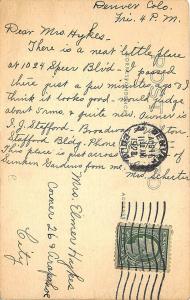 Denver Colo.
Fri. 4 P.M.
Dear Mrs. Hykes -
There is a neat little place
at 1029 Speer Blvd - passed
there just a few minutes ago & I
think it looks good - would judge
about 5 rms. & quite new. Owner is
I.J. Stafford. - Broadway
Stafford Bldg. - Phone
This place is just across
Sunken Gardens from me.
Mrs. Schuster
Mrs Elmer Hykes
Corner 26 & Arapahoe
City